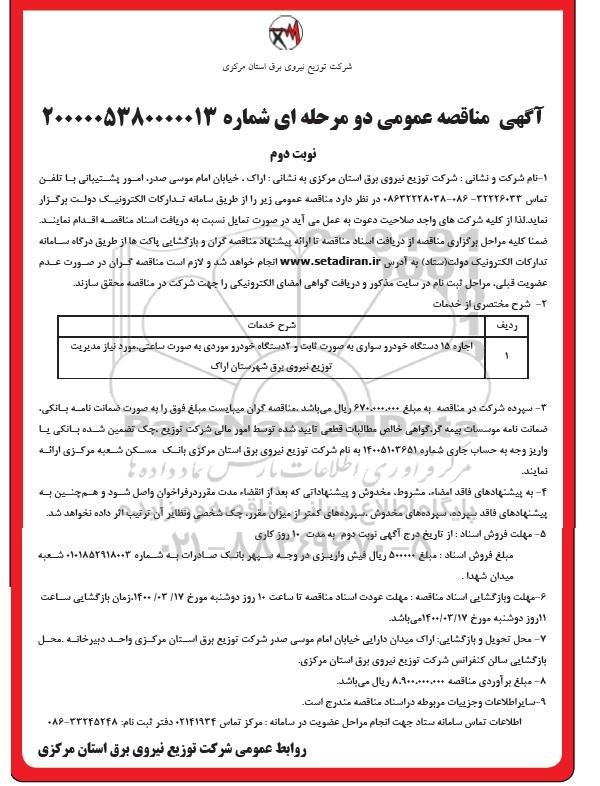 شرکت توزیع نیروی برق استان مرکزی
آگهی مناقصه عمومی دو مرحله ای شماره ۲۰۰۰۰۰۵۳۸۰۰۰۰۰۱۳
نوبت دوم
۱-نام شرکت و نشانی : شرکت توزیع نیروی برق استان مرکزی به نشانی : اراک ، خیابان امام موسی صدر، امور پشتیبانی با تلفن
تماس ۳۲۲۲۶۰۳۳- ۰۸۶-۰۸۶۳۲۲۲۸۰۳۸ در نظر دارد مناقصه عمومی زیر را از طریق سامانه تدارکات الکترونیک دولت برگزار
نماید.لذا از کلیه شرکت های واجد صلاحیت دعوت به عمل می آید در صورت تمایل نسبت به دریافت اسناد مناقصه اقدام نمایند.
ضمنا کلیه مراحل برگزاری مناقصه از دریافت اسناد مناقصه تا ارائه پیشنهاد مناقصه گران و بازگشایی پاکت ها از طریق درگاه سامانه
تدارکات الکترونیک دولت(ستاد) به آدرس www.setadiran.ir انجام خواهد شد و لازم است مناقصه گران در صورت عدم
عضویت قبلی، مراحل ثبت نام در سایت مذکور و دریافت گواهی امضای الکترونیکی را جهت شرکت در مناقصه محقق سازند.
۲- شرح مختصری از خدمات
ردیف شرح خدمات
۱ اجاره ۱۵ دستگاه خودرو سواری به صورت ثابت و ۲دستگاه خودرو موردی به صورت ساعتی،مورد نیاز مدیریت
توزیع نیروی برق شهرستان اراک
۳- سپرده شرکت در مناقصه به مبلغ ۶۷۰،۰۰۰،۰۰۰ ریال می‌باشد .مناقصه گران میبایست مبلغ فوق را به صورت ضمانت نامه بانکی،
ضمانت نامه موسسات بیمه گر،گواهی خالص مطالبات قطعی تایید شده توسط امور مالی شرکت توزیع ،چک تضمین شده بانکی یا
واریز وجه به حساب جاری شماره ۱۴۰۰۵۱۰۳۶۵۱ به نام شرکت توزیع نیروی برق استان مرکزی بانک مسکن شعبه مرکزی ارائه
نمایند.
۴- به پیشنهادهای فاقد امضاء، مشروط، مخدوش و پیشنهاداتی که بعد از انقضاء مدت مقرردرفراخوان واصل شود و هم‌چنین به
پیشنهادهای فاقد سپرده، سپرده‌های مخدوش ،سپرده‌های کمتر از میزان مقرر، چک شخصی ونظایر آن ترتیب اثر داده نخواهد شد.
۵- مهلت فروش اسناد : از تاریخ درج آگهی نوبت دوم به مدت ۱۰ روز کاری
مبلغ فروش اسناد : مبلغ ۵۰۰۰۰۰ ریال فیش واریزی در وجه سپهر بانک صادرات به شماره ۰۱۰۱۸۵۲۹۱۸۰۰۳ شعبه
میدان شهدا .
۶-مهلت وبازگشایی اسناد مناقصه : مهلت عودت اسناد مناقصه تا ساعت ۱۰ روز دوشنبه مورخ ۱۷/ ۰۳/ ۱۴۰۰،زمان بازگشایی ساعت
۱۱روز دوشنبه مورخ ۱۴۰۰/۰۳/۱۷می‌باشد.
۷- محل تحویل و بازگشایی: اراک میدان دارایی خیابان امام موسی صدر شرکت توزیع برق استان مرکزی واحد دبیرخانه .محل
بازگشایی سالن کنفرانس شرکت توزیع نیروی برق استان مرکزی.
۸- مبلغ برآوردی مناقصه ۸،۹۰۰،۰۰۰،۰۰۰ ریال می‌باشد.
۹-سایراطلاعات وجزییات مربوطه دراسناد مناقصه مندرج است.
اطلاعات تماس سامانه ستاد جهت انجام مراحل عضویت در سامانه : مرکز تماس ۰۲۱۴۱۹۳۴ دفتر ثبت نام: ۳۳۲۴۵۲۴۸-۰۸۶
روابط عمومی شرکت توزیع نیروی برق استان مرکزی
مرکز فرآوری اطلاعات پارس نماد داده ها
پایگاه اطلاع رسانی مناقصه و مزایده
۰۲۱-۸۸۳۴۹۶۷۰-۵